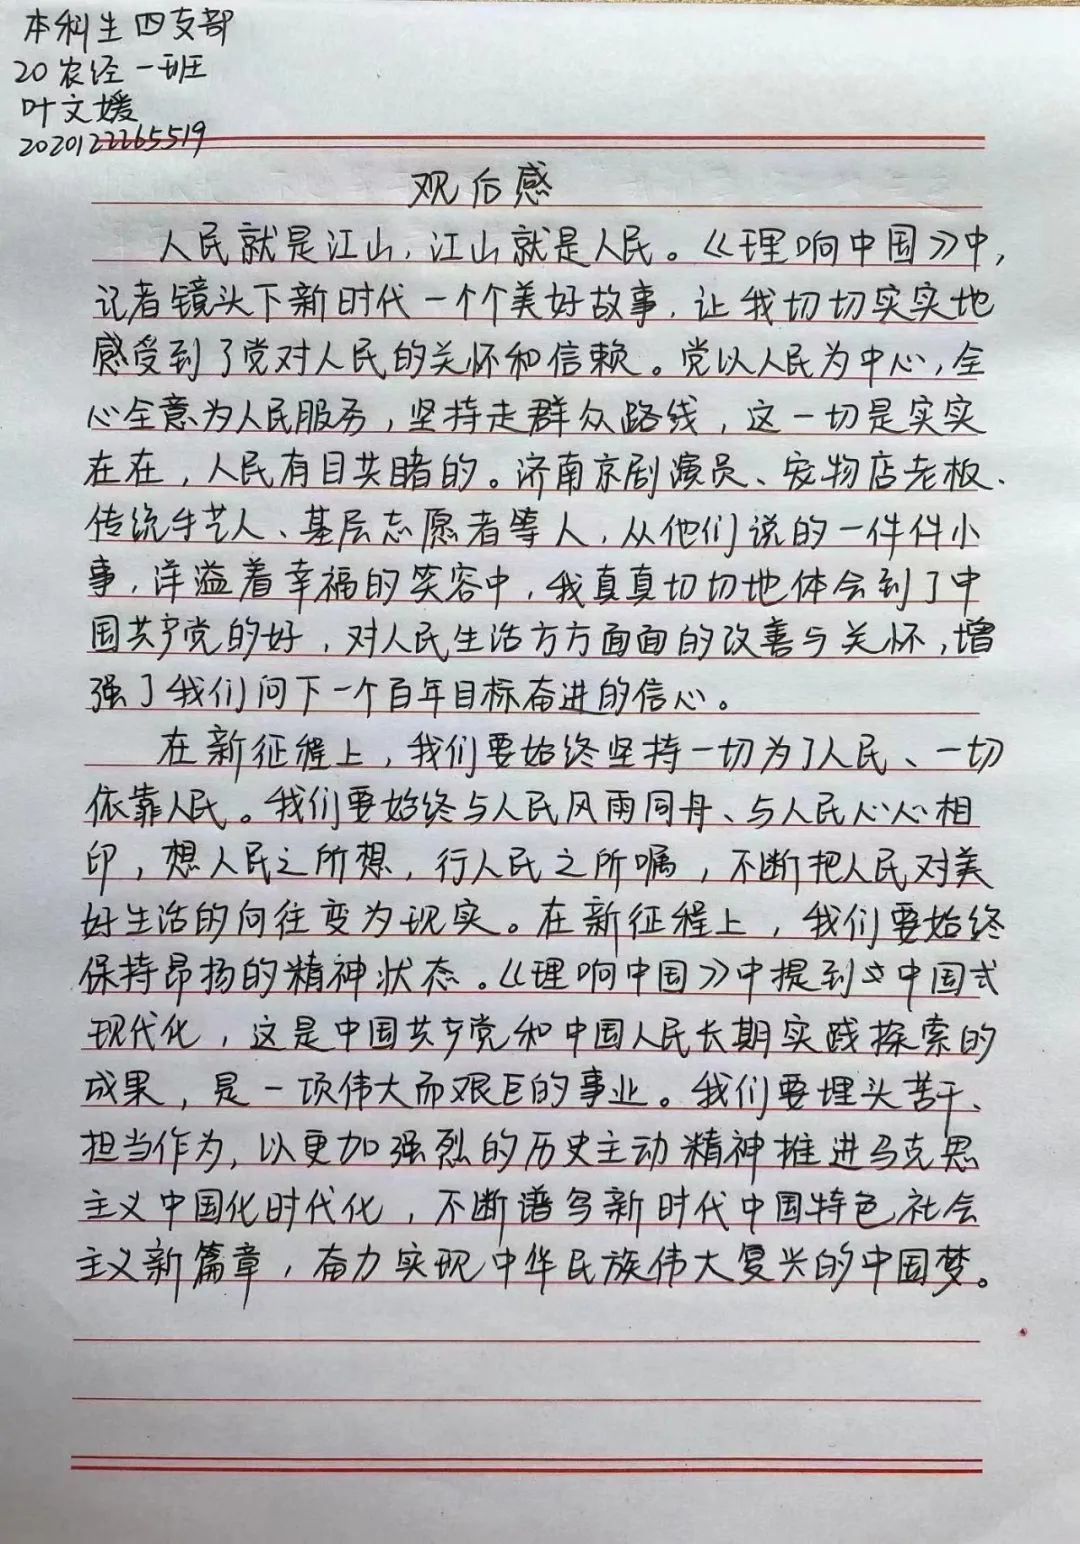 本科生四支部
20农经一班
叶文媛
2020122265519
观后感
人民就是江山,江山就是人民。《理响中国》中,
记者镜头下新时代一个个美好故事,让我切切实实地
感受到了党对人民的关怀和信赖。党以人民为中心,全
心全意为人民服务,坚持走群众路线,这一切是实实
在在,人民有目共睹的。济南京剧演员、宠物店老板、
传统手艺人、基层志愿者等人,从他们说的一件件小
事,洋溢着幸福的笑容中,我真真切切地体会到了中
国共产党的好,对人民生活方方面面的改善与关怀,增
强了我们向下一个百年目标奋进的信心。
在新征程上,我们要始终坚持一切为了人民、一切
依靠人民。我们要始终与人民风雨同舟、与人民心心相
印,想人民之所想,行人民之所嘱,不断把人民对美
好生活的向往变为现实。在新征程上,我们要始终
保持昂扬的精神状态。《理响中国》中提到中国式
现代化,这是中国共产党和中国人民长期实践探索的
成果,是一项伟大而艰巨的事业。我们要埋头苦干、
担当作为,以更加强烈的历史主动精神推进马克思
主义中国化时代化,不断谱写新时代中国特色社会
主义新篇章,奋力实现中华民族伟大复兴的中国梦。